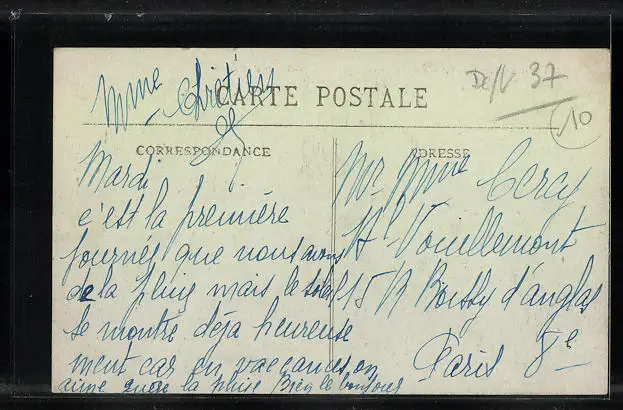 Mme Chrétien
CARTE POSTALE
37
10
CORRESPONDANCE
ADRESSE
Mardi
c'est la première
journée que nous avons
de la pluie mais le soleil
se montre déja heureuse
ment car en vaccances on
aime guère la pluie Bien le bonjour
Mr Mme Cercy
Hl Vouillemont
15 R Boissy d'anglas
Paris 8e